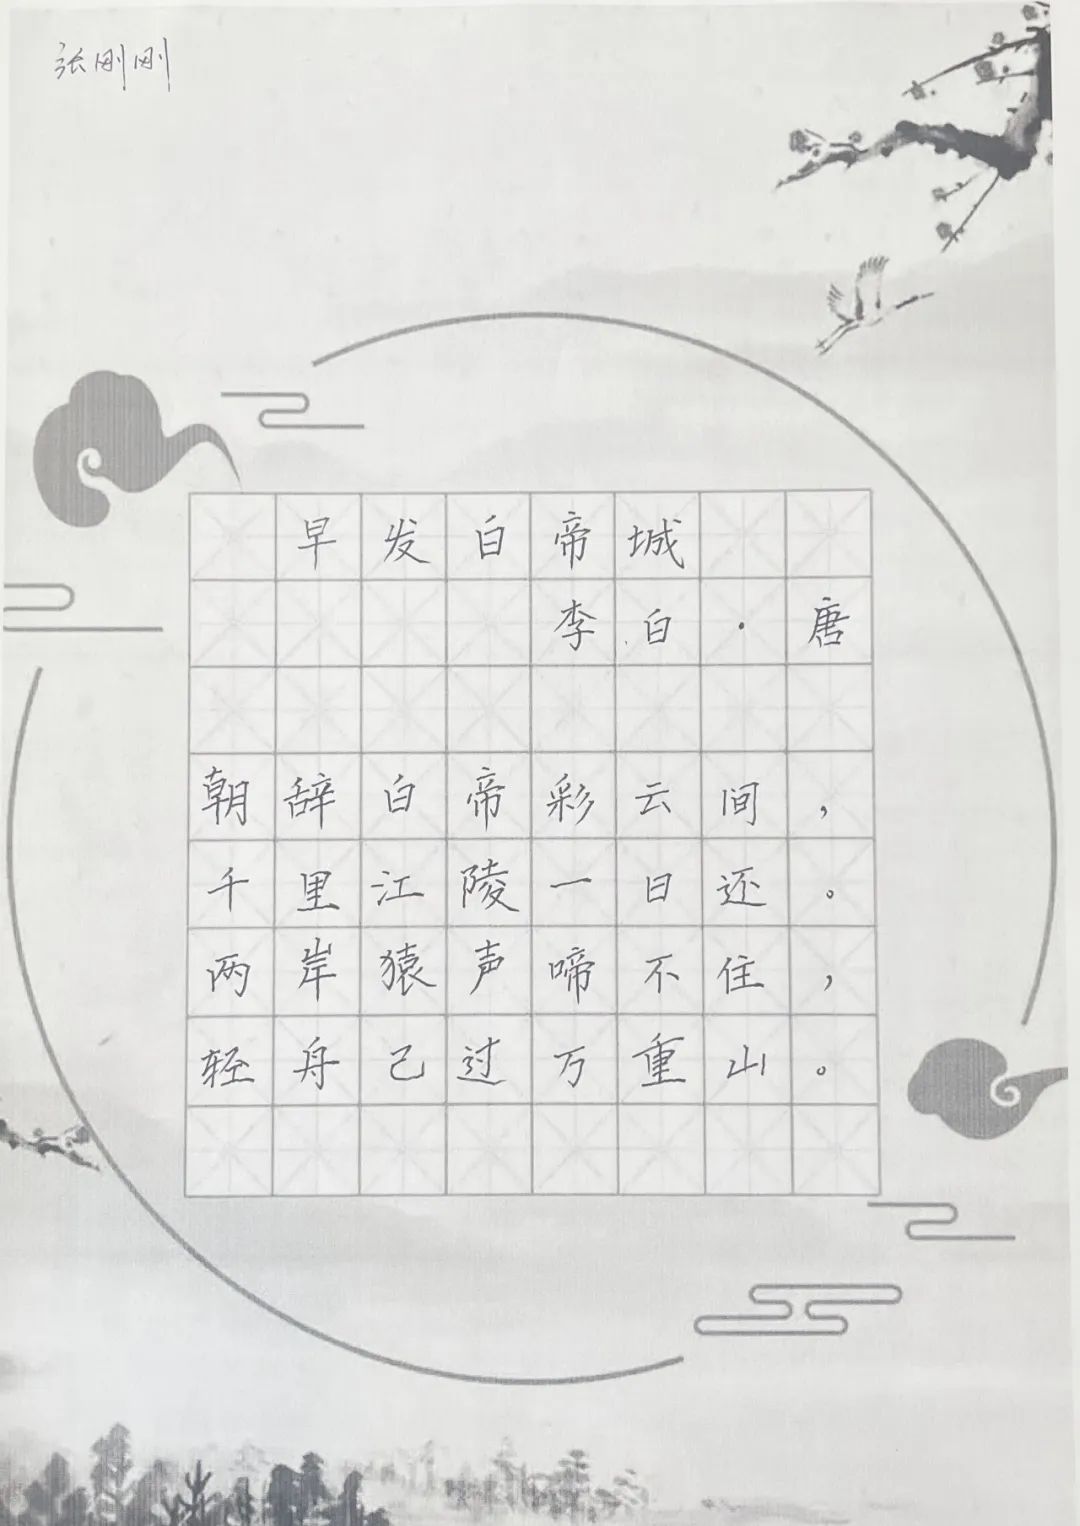 张刚刚
早发白帝城
李白·唐
朝辞白帝彩云间，
千里江陵一日还。
两岸猿声啼不住，
轻舟己过万重山。